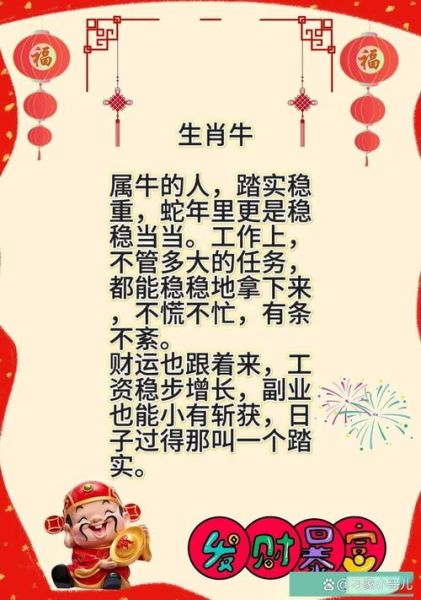 福
福
生肖牛
属牛的人，踏实稳
重，蛇年里更是稳
稳当当。工作上，
不管多大的任务，
都能稳稳地拿下来
，不慌不忙，有条
不紊。
财运也跟着来，工
资稳步增长，副业
也能小有斩获，日
子过得那叫一个踏
实。
发财暴富